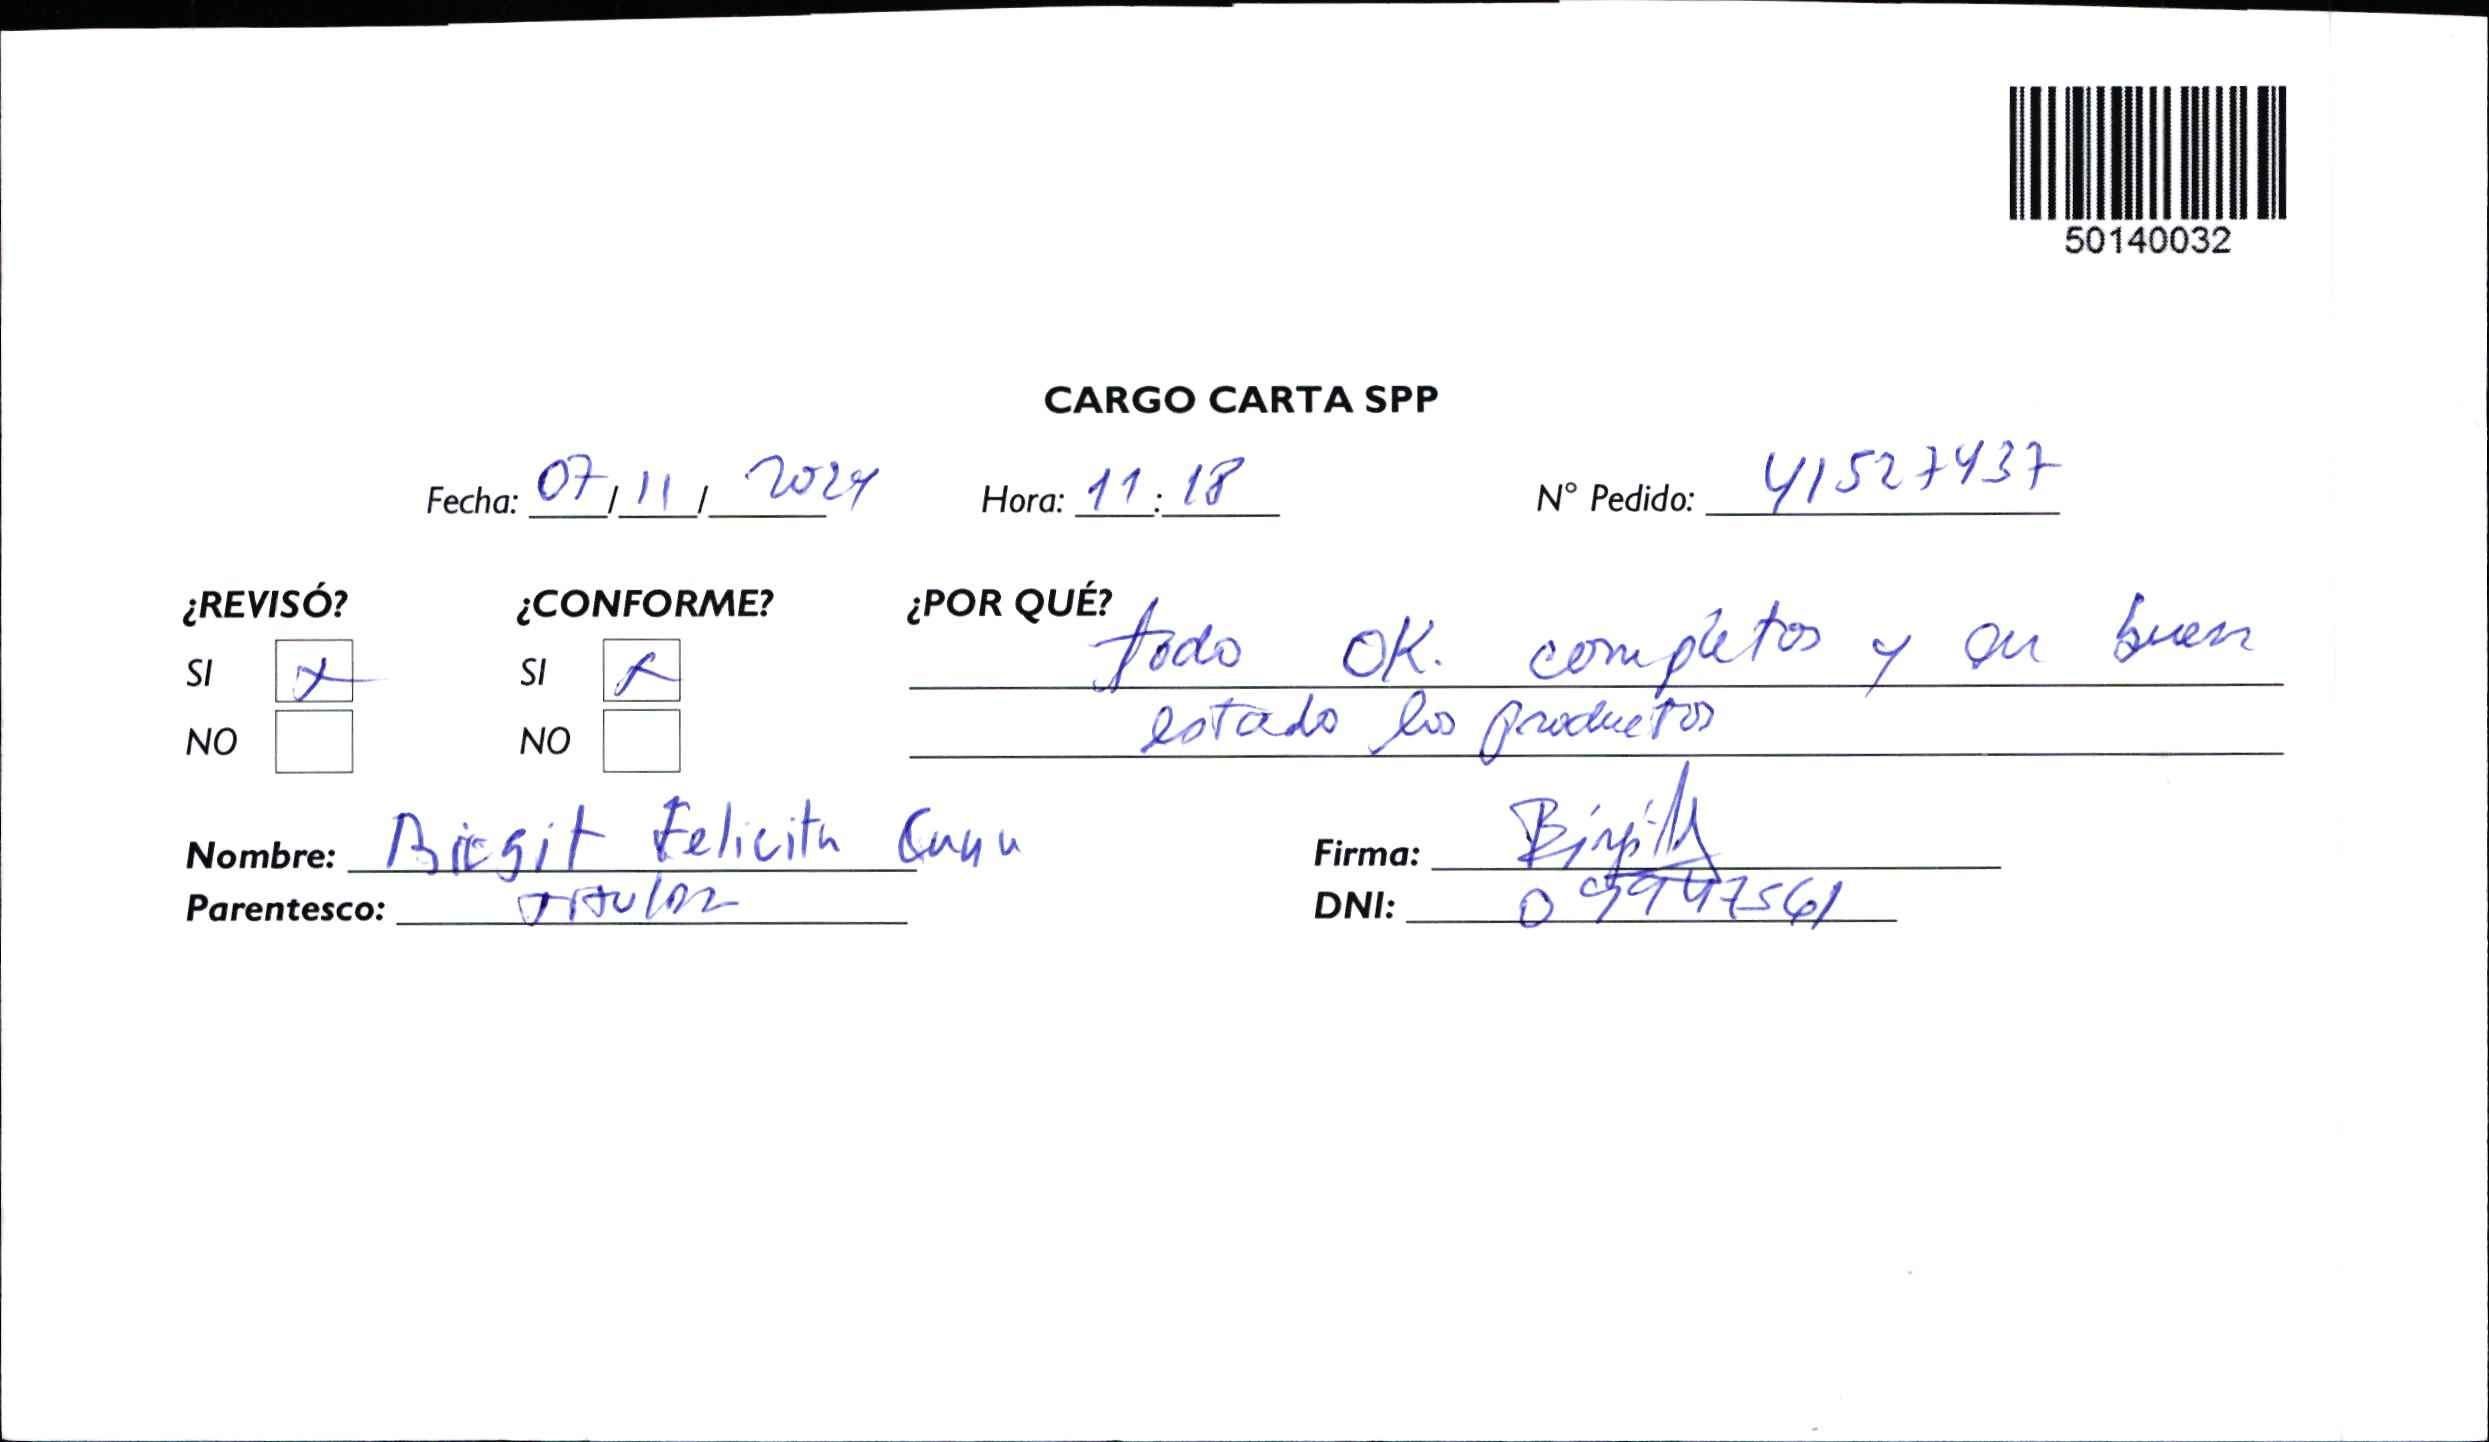 50140032
CARGO CARTA SPP
Fecha: 07/11/2024 Hora: 11:18 N° Pedido: 41527437
¿REVISÓ? ¿CONFORME? ¿POR QUÉ?
SI x SI x todo OK. completos y en buen
NO NO estado los productos
Nombre: Birgit Felicita Firma:
Parentesco: TITULAR DNI: 09947561